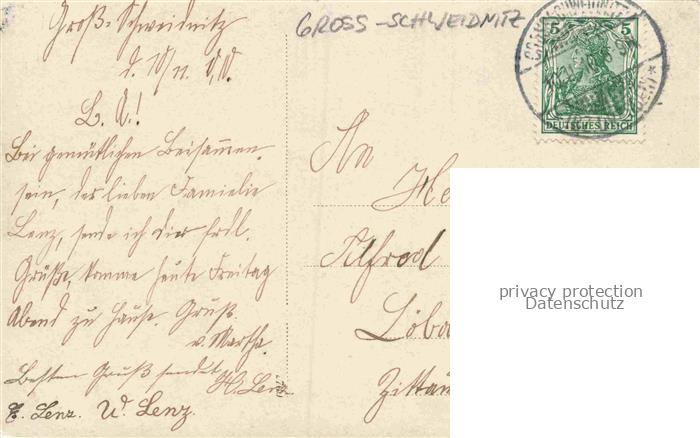 Groß-Schweidnitz
GROSS-SCHWEIDNITZ
d. 10/11.
L. A.!
Bei gemütlichen Beisammen-
sein, der lieben Familie
Lenz, sende ich Dir frdl.
Grüße, komme heute Freitag
Abend zu Hause. Gruß
v. Martha.
Besten Gruß sendet H. Lenz
E. Lenz. W. Lenz.
5 5
DEUTSCHES REICH
An
He
Alfred
Löba
Zittau
privacy protection
Datenschutz